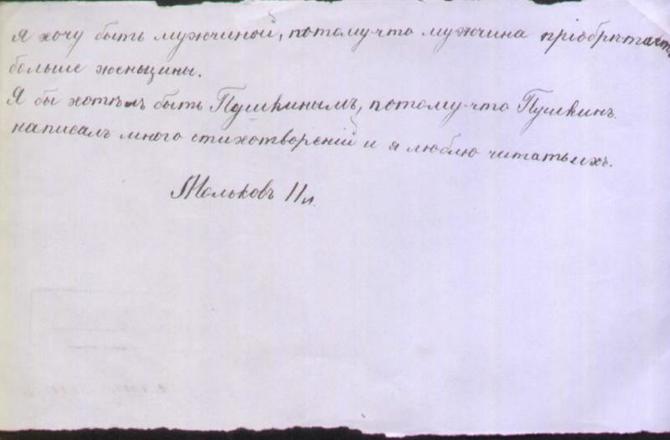 Я хочу быть мужчиной, потому-что мужчина пріобрѣтаетъ
больше женьщины.
Я бы хотѣлъ быть Пушкинымъ, потому-что Пушкинъ
написалъ много стихотвореній и я люблю читать ихъ.
Мольковъ 11 л.